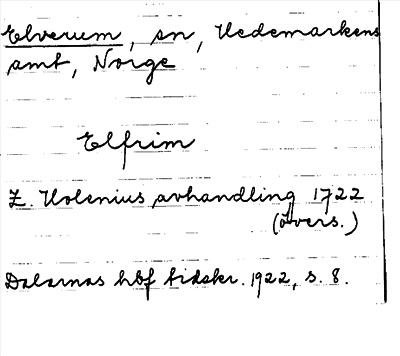 Elverum, sn, Hedemarkens
amt, Norge
Elfrim
Z. Holenius avhandling 1722
(övers.)
Dalarnas hbf tidskr. 1922, s. 8.